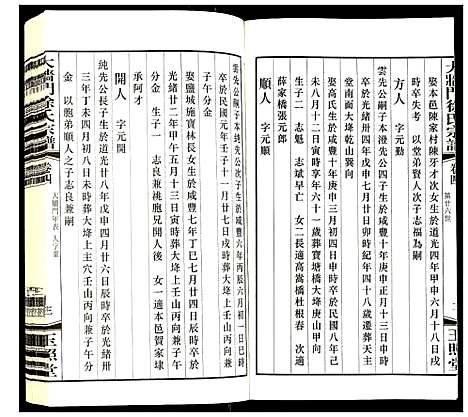 大牆門徐氏宗譜
卷四
第廿六世
方人　字元勤
娶本邑陳家村陳牙才次女生於道光四年甲申六月十八日
時卒失考　以堂弟賢人次子志福為嗣
雲先公嗣子本澄先公四子生於咸豐十年庚申正月十三日
卒於光緒卅四年戊申七月廿日卯時紀年四十八歲遷葬天
堂南面大埄乾山巽向
娶高氏生於咸豐十一年四月初四日申時卒於民國八年己
未八月十二日戌時年六十歲葬寶塘橋大埄庚山甲向
生子二　志魁　志斌早亡　女二長適高嵩橋杜根春　次適
薛家橋張元郎
順人　字元順
雲先公嗣子本純先公次子生於咸豐八年
卒於民國元年壬子十一月廿七日戌時葬大埄上壬山丙向兼
子午分金
娶鹽城施寶林長女生於咸豐七年丁巳七月廿四日辰時卒於
光緒廿二年甲午五月十三日寅時葬大埄上壬山丙向兼子午
分金　生子一　志良兼桃胞兄開人後　女一適本邑賀家埭
承阿才
開人　字元開
純先公長子生於道光廿八年戊申四月廿六日辰時卒於光緒卅
三年丁未四月初八日未時葬大埄上主穴壬山丙向兼子午分
金　以胞弟順人之子志良兼嗣
大牆門徐氏宗譜
卷四
大牆門年表　人字輩
三
玉照堂